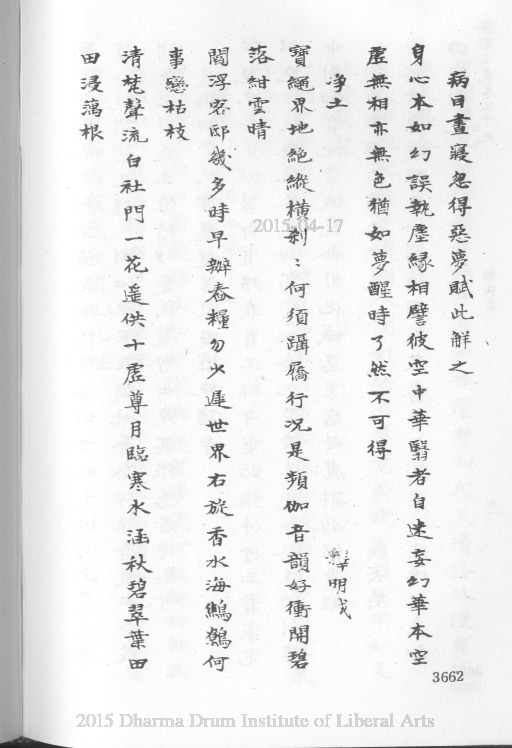 病目晝寢忽得惡夢賦此解之
身心本如幻誤執塵緣相譬彼空中華翳者自迷妄幻華本空
虛無相亦無色猶如夢醒時了然不可得
淨土
釋明
寶繩界地絶縱橫剎:何須躡屩行况是頻伽音韻好衝開碧
落紺雲晴
閻浮客邸幾多時早辦舂糧勿少遲世界右旋香水海鷦鷯何
事戀枯枝
清梵聲流白社門一花遥供十虛尊月臨寒水涵秋碧翠葉田
田浸藕根
3662
2015-04-17
2015 Dharma Drum Institute of Liberal Arts